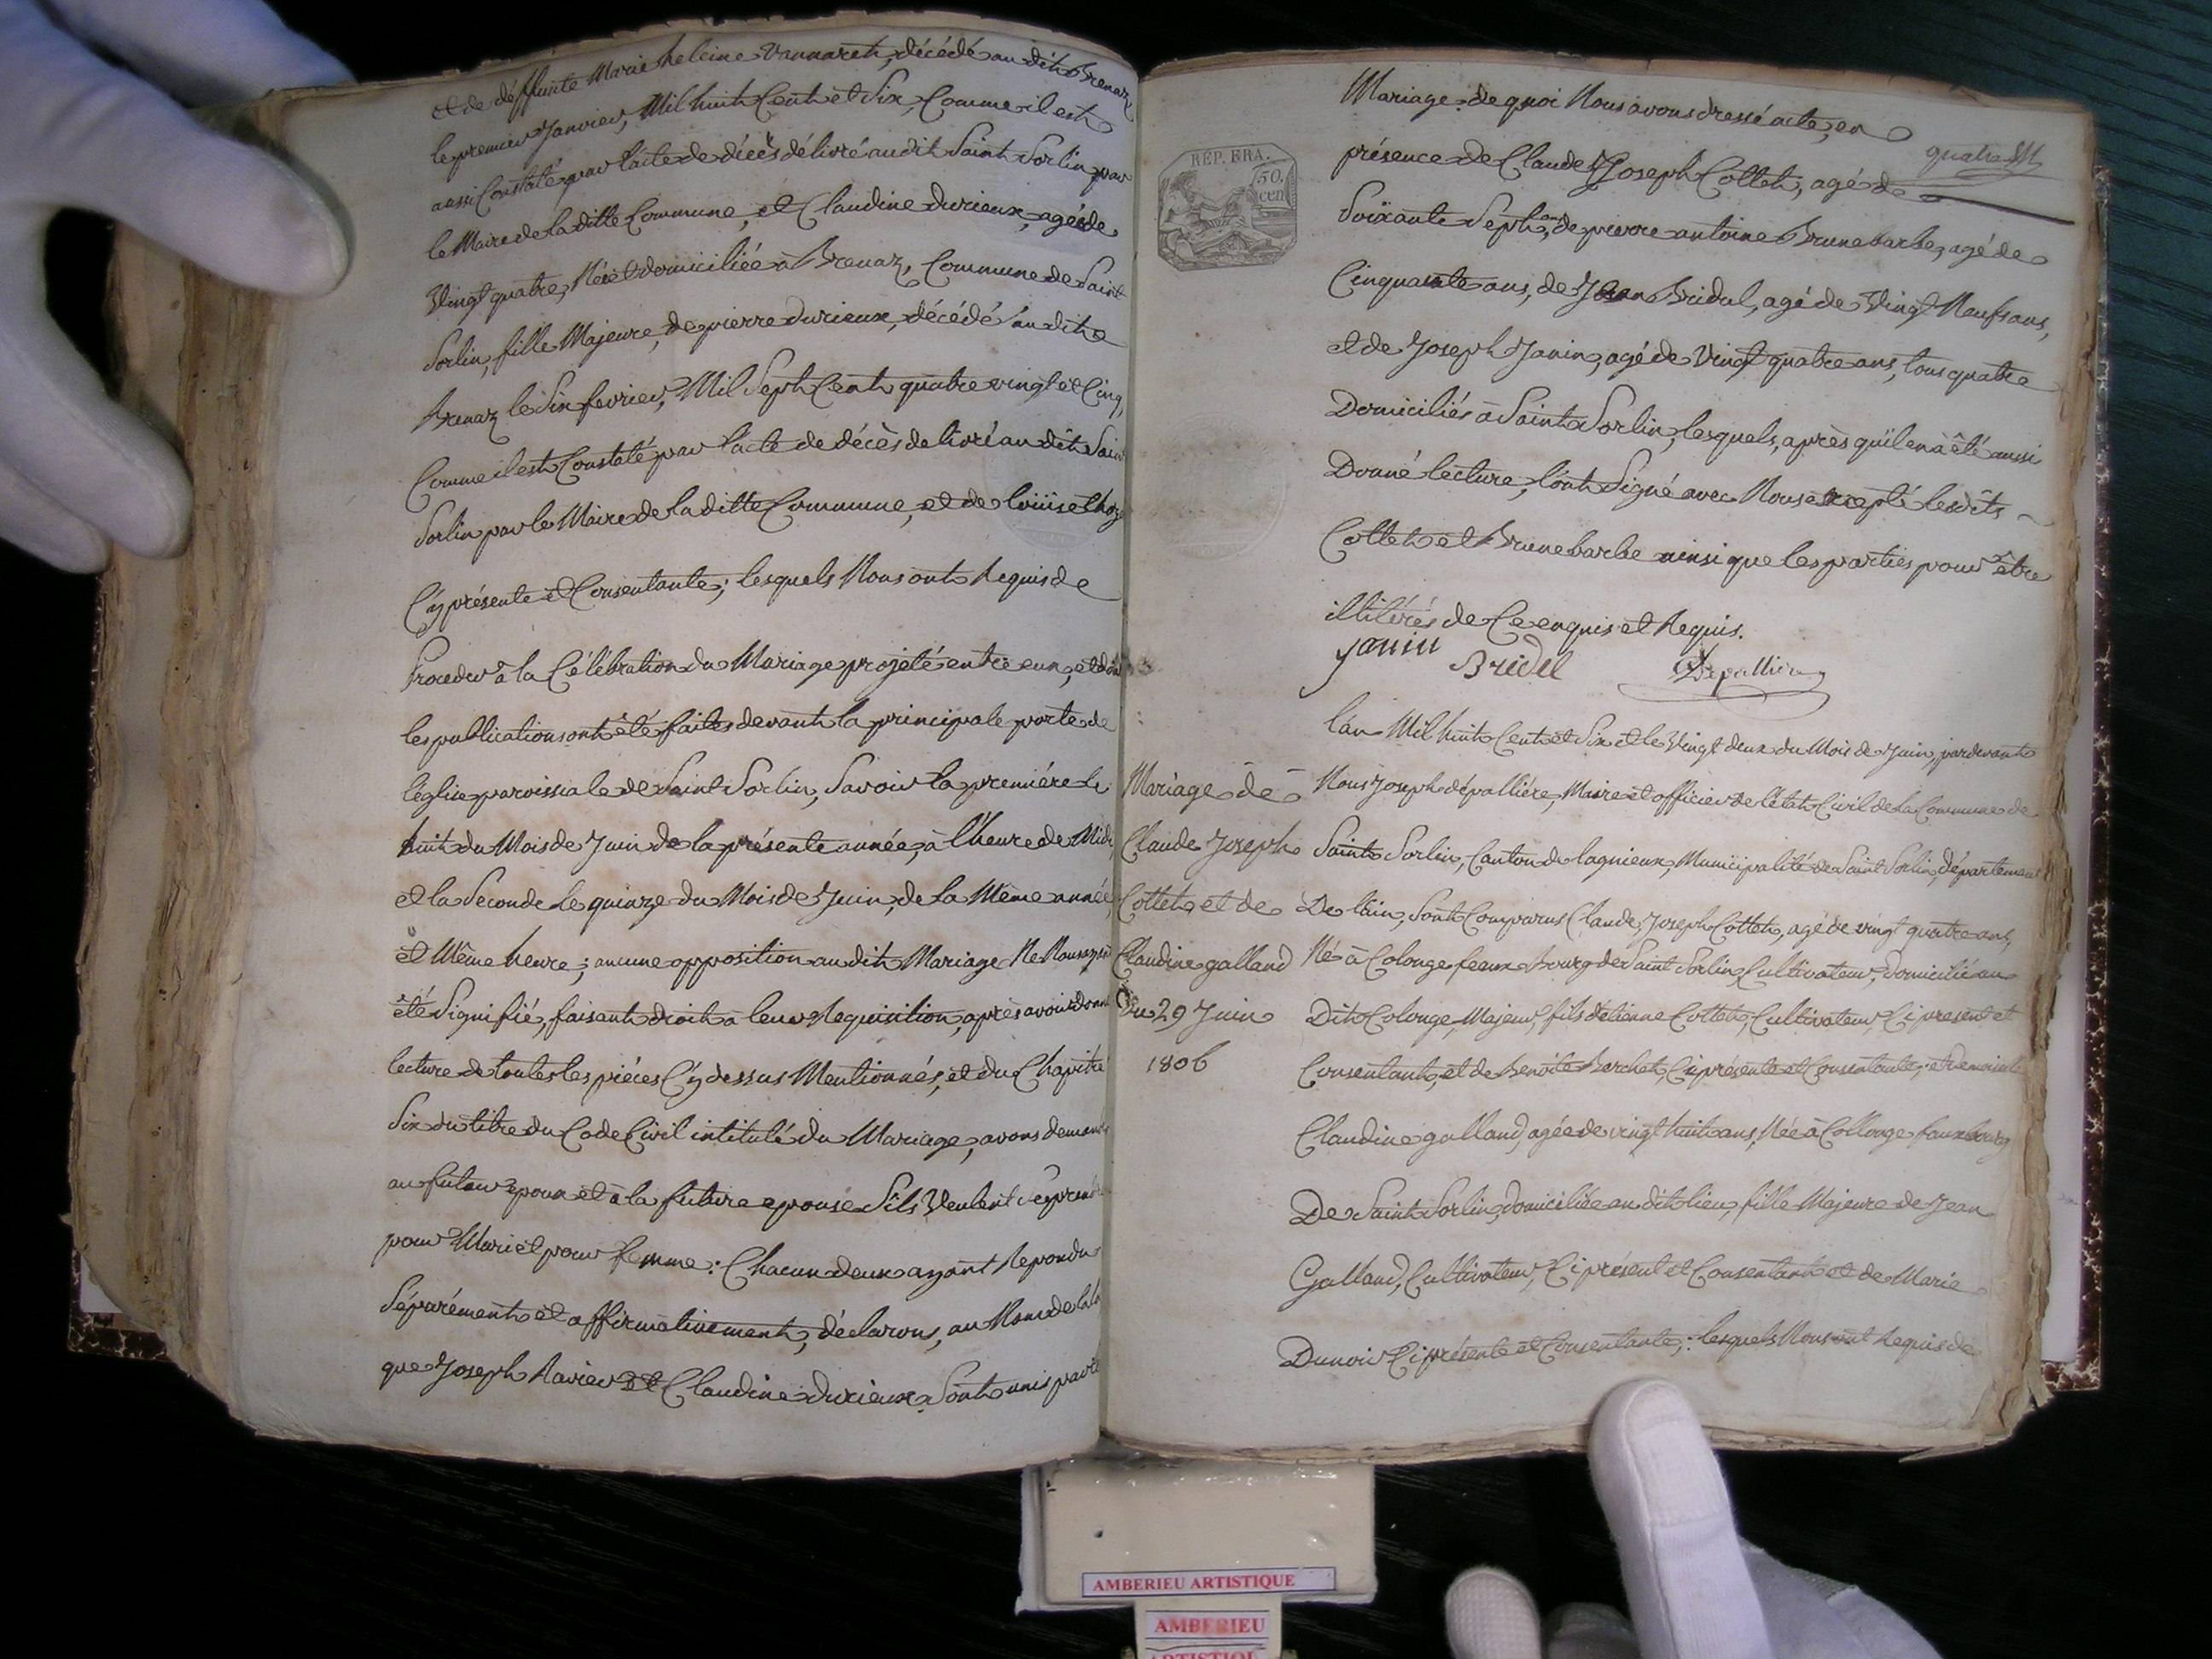 et de déffunte Marie heleine Vannareth, décédé au dith Brenaz
le premier Janvier, Mil huit Cent et Six, Comme il est
aussi Constaté par l'acte de décès délivré audit Saint Sorlin par
le Maire de la ditte Commune, et Claudine durieux, agée de
Vingt quatre, Née et domiciliée à Brenaz, Commune de Saint
Sorlin, fille Majeure, de pierre durieux, décédé au dit
Brenaz le Six fevrier, Mil Sept Cent quatre vingt et Cinq,
Comme il est Constaté par l'acte de décès delivré au dit Saint
Sorlin par le Maire de la ditte Commune, et de loüise
C'y présente et Consentante; lesquels Nous ont Requis de
Proceder à la Célébration du Mariage projeté entre eux, et dont
les publications ont été faites devant la principale porte de
l'église paroissiale de Saint Sorlin, Savoir la première le
huit du Mois de Juin de la présente année, à l'heure de Midi
et la Seconde le quinze du Mois de Juin, de la Même année,
et Même heure; aucune opposition au dit Mariage Ne Nous ayant
été Signifié, faisant droit à leur Requisition, après avoir donné
lecture de toutes les pièces C'y dessus Mentionnés, et du Chapitre
Six du titre du Code Civil intitulé du Mariage, avons demandé
au futur epoux et à la future epouse S'ils Veulent
pour Mari et pour femme: Chacun deux ayant Repondu
Séparément et affirmativement, déclarons, au Nom de la loi
que Joseph Ravier et Claudine durieux Sont unis par le
Mariage. de quoi Nous avons dressé acte, en
quatre
REP. FRA.
50.
cen
présence de Claude Joseph Cottet, agé de
Soixante Sept ans, de pierre antoine Brunebarbe, agé de
Cinquante ans, de Jean Bridul, agé de Vingt Neuf ans,
et de Joseph Janin, agé de Vingt quatre ans, tous quatre
Domiciliés à Saint Sorlin, lesquels, après qu'il en à été aussi
Donné lecture, l'ont Signé avec Nous excepté lesdits
Cottet et Brunebarbe ainsi que les parties pour être
illitérés de Ce enquis et Requis.
Janin Bridel Depallière
l'an Mil huit Cent et Six et le Vingt deux du Mois de Juin, pardevant
Nous Joseph dépallière, Maire et officier de l'état Civil de la Commune de
Saint Sorlin, Canton de lagnieux, Municipalité de Saint Sorlin, département
De l'ain, Sont Comparus Claude Joseph Cottet, agé de vingt quatre ans,
Né à Colonge feaux bourg de Saint Sorlin, Cultivateur, domicilié au
Dit Colonge, Majeur, fils d'etienne Cottet, Cultivateur, Ci present et
Consentant, et de Benoite Berchet, Ci présente et Consentante; et demoiselle
Claudine galland, agée de vingt huit ans, Née à Collonge faux bourg
De Saint Sorlin, domiciliée au dit lieu, fille Majeure de Jean
Galland, Cultivateur, Ci présent et Consentant et de Marie
Dunoir Ci présente et Consentante; lesquels Nous ont Requis de
Mariage de
Claude Joseph
Cottet, et de
Claudine galland
Du 29 Juin
1806
AMBERIEU ARTISTIQUE
AMBERIEU
ARTISTIQUE